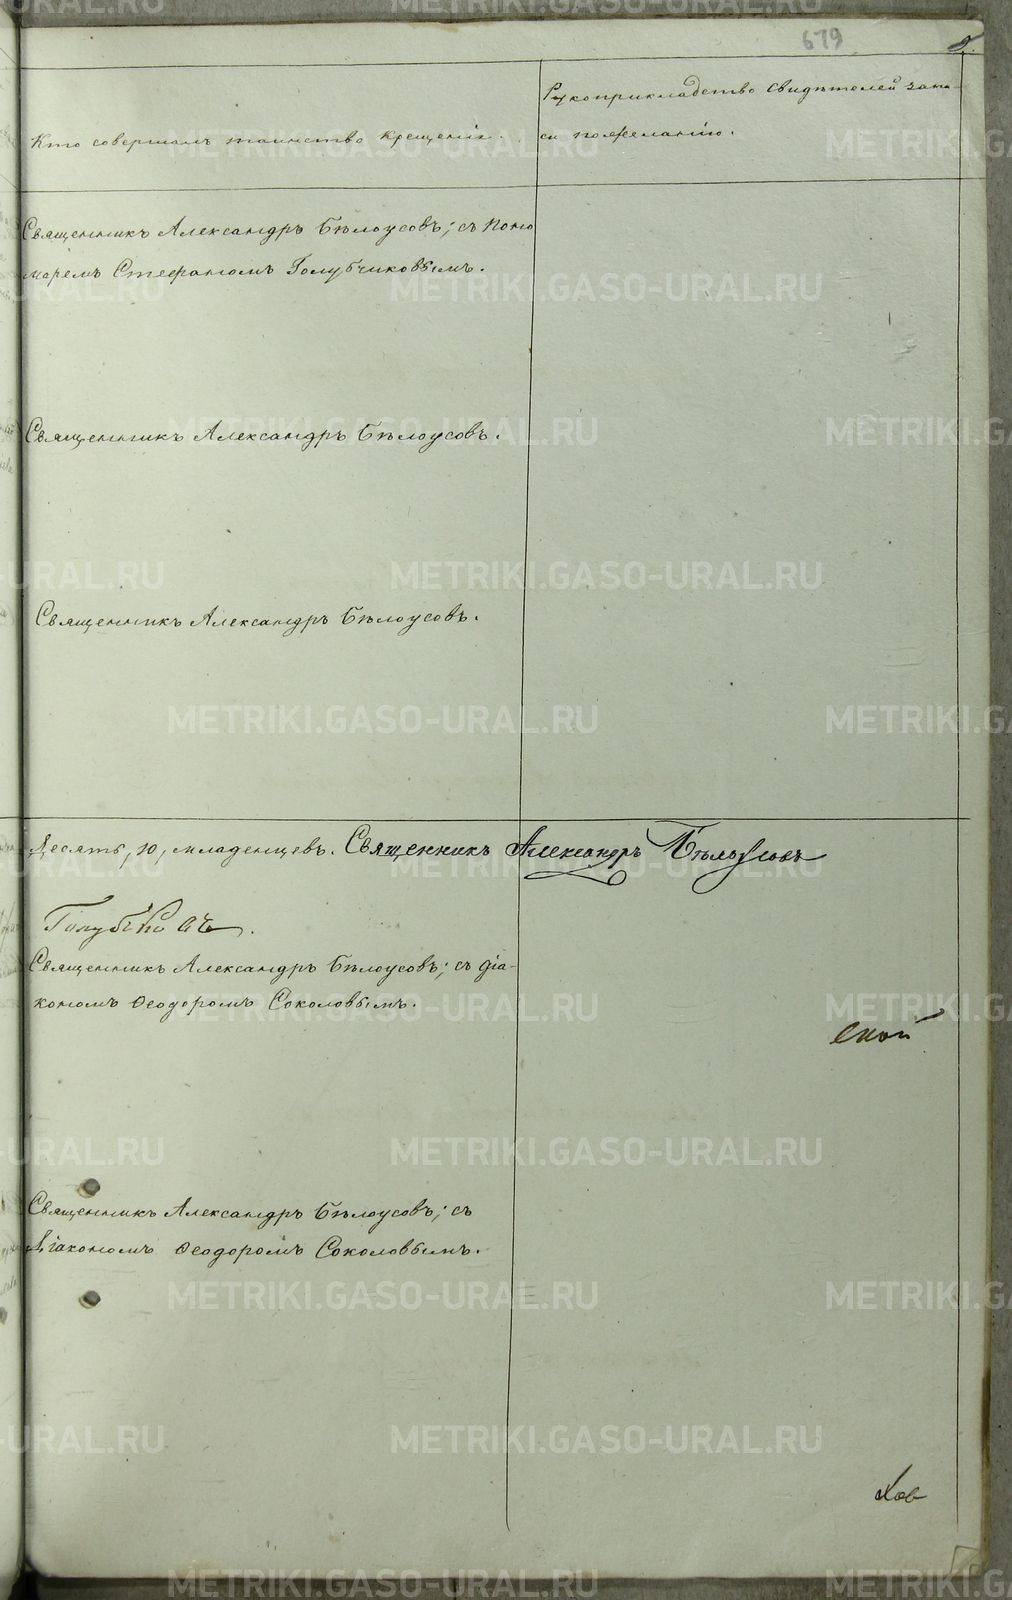 679
Кто совершалъ таинство крещенія.
Рукоприкладство свидѣтелей запи-
си по желанію.
Священникъ Александръ Бѣлоусовъ; съ Поно
маремъ Стефаномъ Голубчиковымъ.
Священникъ Александръ Бѣлоусовъ.
Священникъ Александръ Бѣлоусовъ.
Десять, 10, младенцевъ. Священникъ Александръ Бѣлоусовъ
Священникъ Александръ Бѣлоусовъ; съ діа-
кономъ Ѳеодоромъ Соколовымъ.
ской
Священникъ Александръ Бѣлоусовъ; съ
Діакономъ Ѳеодоромъ Соколовымъ.
METRIKI.GASO-URAL.RU